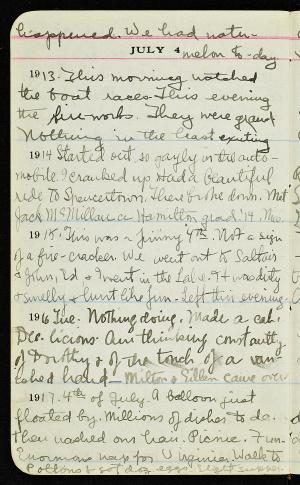 happened. We had water-
JULY 4
melon to-day
1913. This morning watched
the boat races. This evening
the fireworks. They were grand
Nothing in the least exciting
1914 Started out so gayly in the auto-
mobile. Cranked up. Had a beautiful
ride to Spencertown. There broke down. Met
Jack McMillan, a Hamilton grad. '14.
1915. This was a funny 4th. Not a sign
of a fire-cracker. We went out to Saltair
& John, Ed & I went in the Lake. It was dirty
& smelly & hurt like fun. Left this evening.
1916 Tue. Nothing doing. Made a cake.
Delicious. Am thinking constantly
of Dorothy & of the touch of a van-
ished hand – Milton & Ellen came over
1917. 4th of July. A balloon just
floated by. Millions of dishes to do.
Then washed our hair. Picnic. Fun.
Enormous nap for Virginia. Walk to
eggs
supper